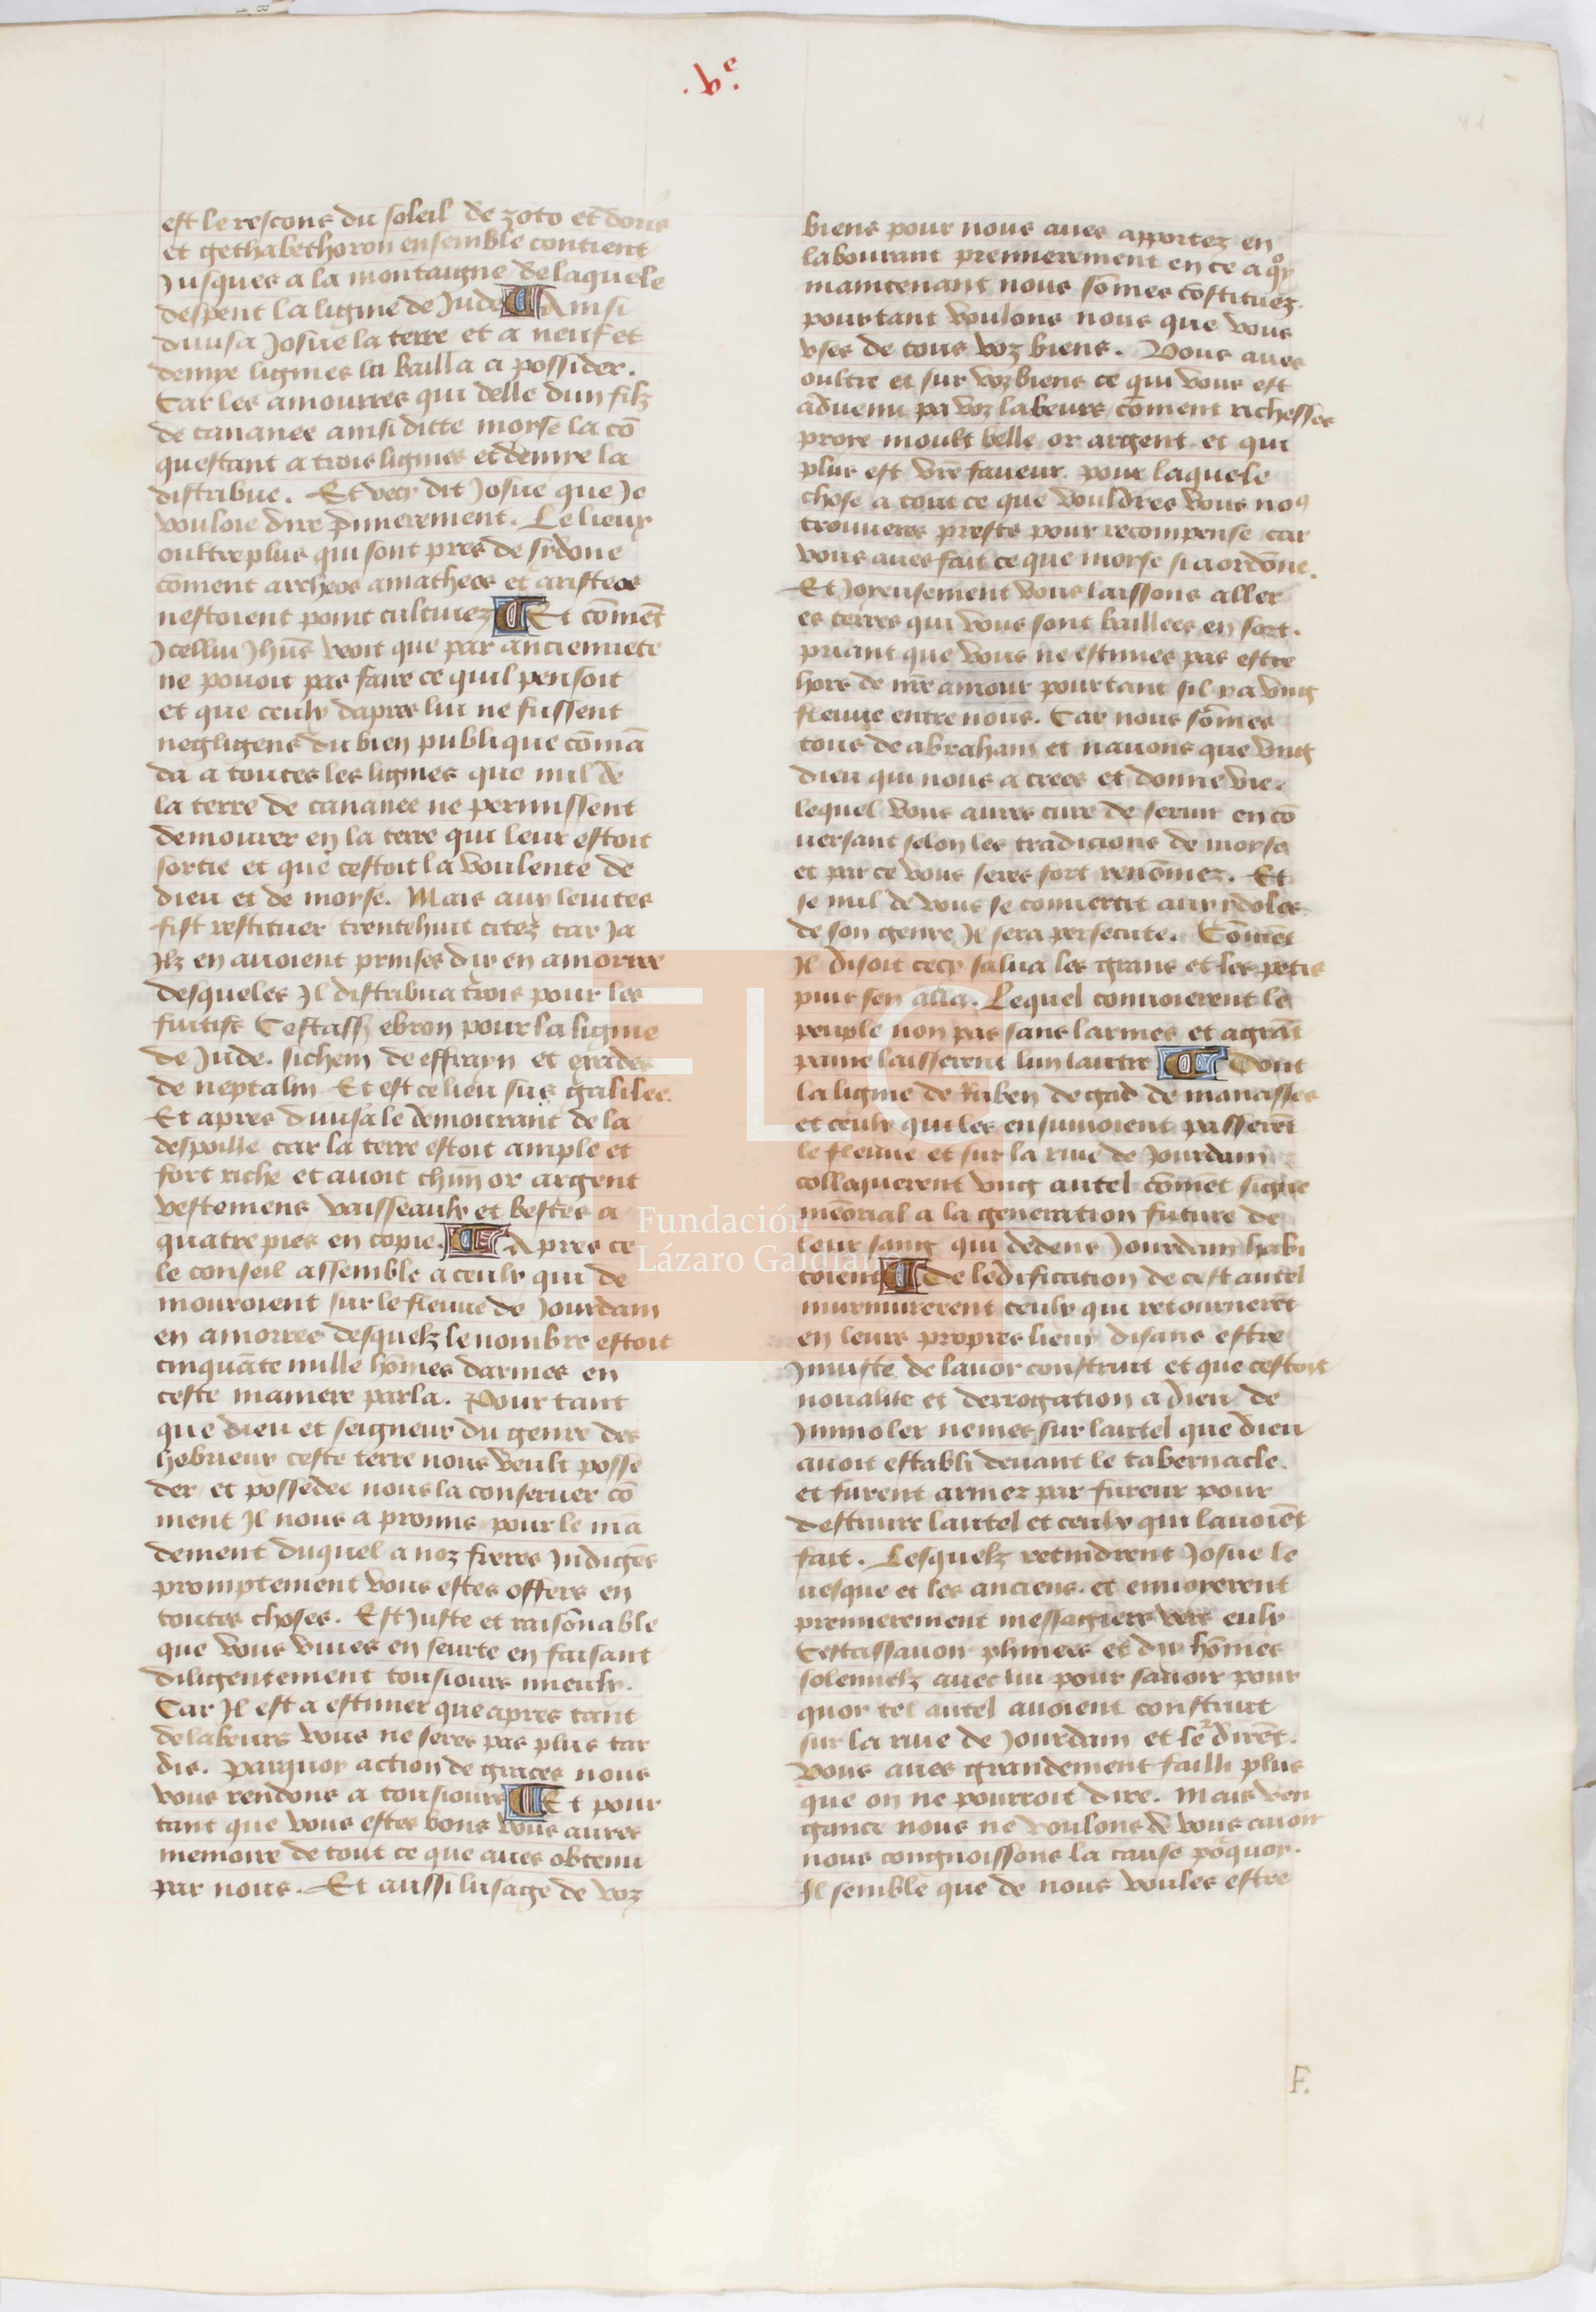 .b.e
est le rescons du soleil de zoto et doris
et gethabethoron ensemble contient
Jusques a la montaigne de laquele
despent la lignie de Jude Ainsi
diuisa Josue la terre et a neuf et
demye lignies la bailla a possider.
Car les amourres qui delle dun filz
de cananee ainsi ditte moyse la cõ
questant a trois lignies et demye la
distribue. Et vecy dit Josue que Je
vouloie dire
oultreplus qui sont pres de sydone
cõment archeos amatheos et aristeos
nestoient point cultiuez Et cõmẽt
Jcellui Jhũs veoit que par anciennete
ne pouoit pas faire ce quil pensoit
et que ceulx dapres lui ne fussent
negligens du bien publique cõmã
da a toutes les lignies que nul de
la terre de cananee ne permissent
demourer en la terre qui leur estoit
sortie et que cestoit la voulente de
dieu et de moyse. Mais aux leuites
fist restituer trentehuit citez car Ja
Jlz en auoient prinses dix en amorree
desqueles Jl distribua trois pour les
fuitifz Cestass ebron pour la lignie
de Jude. sichem de effrayn et
de neptalin Et est ce lieu sus galilee.
Et apres diuisa le demourant de la
despoille car la terre estoit ample et
fort riche et auoit chũn or argent
vestemens vaisseaulx et bestes a
quatre pies en copie. Apres ce
le conseil assemble a ceulx qui de
mouroient sur le fleuue de Jourdain
en amorree desquelz le nombre estoit
cinquãte mille hõmes darmes en
ceste maniere parla. Pour tant
que dieu et seigneur du genre des
hebrieux ceste terre nous veult posse
der et possedee nous la conseruer cõ
ment Jl nous a promis pour le mã
dement duquel a noz freres Jndigẽs
promptement vous estes offers en
toutes choses. Est Juste et raisõnable
que vous viues en seurte en faisant
diligentement tousiours mieulx.
Car Jl est a estimer que apres tant
de labeurs vous ne seres pas plus tar
dis. Parquoy action de graces nous
vous rendons a tousiours Et pour
tant que vous estes bons vous aures
memoire de tout ce que aues obtenu
par nous. Et aussi lusage de voz
biens pour nous aues apportez en
labourant premierement en ce a qͦy
maintenant nous sõmes cõstituez.
pourtant voulons nous que vous
vses de tous voz biens. Vous aues
oultre et sur voz biens ce qui vous est
aduenu pa voz labeurs cõment richesses
proye moult belle or argent et qui
plus est vr̃e faueur. pour laquele
chose a tout ce que vouldres vous noꝰ
trouueres prests pour recompense car
vous aues fait ce que moyse si a ordõne.
Et Joyeusement vous laissons aller
es terres qui vous sont baillees en sort.
priant que vous ne estimes pas estre
hors de nr̃e amour pourtant sil y a vng
fleuue entre nous. Car nous sõmes
tous de abraham et nauons que vng
dieu qui nous a crees et donne vie.
lequel vous aures cure de seruir en cõ
uersant selon les tradicions de moyse
et par ce vous seres fort renõmez. Et
se nul de vous se conuertit aux ydoles
de son genre Jl sera persecute. Cõmẽt
Jl disoit cecy salua les grans et les petis
puis sen alla. Lequel conuoierent le
peuple non pas sans larmes et a grãt
paine laisserent lun lautre Dont
la lignie de Ruben de gad de manasses
et ceulx qui les ensuiuoient passerẽt
le fleuue et sur la riue de Jourdain
colloquerent vng autel cõmẽt signe
mẽorial a la generation future de
leur sang qui dedens Jourdain habi
toient De ledification de cest autel
murmurerent ceulx qui retournerẽt
en leurs propres lieux disans estre
Jniuste de lauoir construit et que cestoit
noualite et derrogation a dieu de
Jmmoler nemes sur lautel que dieu
auoit establi deuant le tabernacle.
et furent armez par fureur pour
destruire lautel et ceulx qui lauoiẽt
fait. Lesquelz retindrent Josue le
uesque et les anciens. et enuoyerent
premierement messagiers vers eulx
Cestassauoir phinees et dix hõmes
solennelz auec lui pour sauoir pour
quoy tel autel auoient construit
sur la riue de Jourdain et le2 dirẽt.
Vous aues grandement failli plus
que on ne pourroit dire. Mais ven
gance nous ne voulons de vous auoir
nous congnoissons la cause põquoy.
Il semble que de nous voules estre
F.
Fundación
Lázaro Galdiano